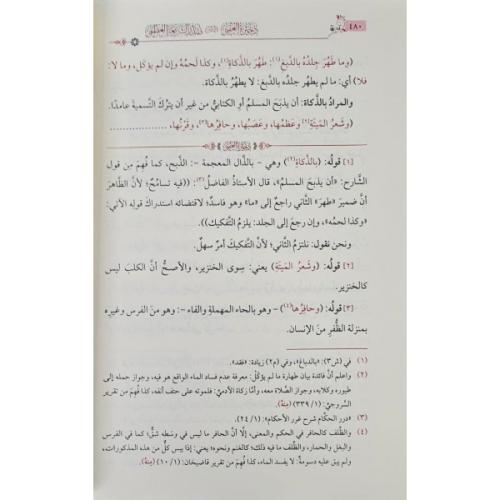 ٤٨٠
(وما طَهُرَ جِلدُهُ بالدَّبغِ(١): طَهُرَ بالذَّكاةِ(٢)، وكذا لحمُهُ وإن لم يؤكل، وما لا:
فلا) أي: ما لم يطهر جلدُه بالدَّبغ: لا يطهُر بالذَّكاة.
والمرادُ بالذَّكاة: أن يَذبحَ المسلمُ أو الكتابيُّ من غيرِ أن يتركَ التَّسميةَ عامدًا.
(وشَعرُ المَيتةِ(٢) وعَظمُها، وعَصَبُها، وحافِرُها(٣)، وقَرنُها،
[١] قولُه: (بالذَّكاة(٢)) وهي - بالذَّال المعجمة -: الذَّبح، كما فُهِمَ مِن قولِ
الشَّارح: «أن يذبحَ المسلم»، قال الأستاذُ الفاضلُ(٣): ((فيه تسامحٌ؛ لأنَّ الظَّاهرَ
أنَّ ضميرَ «طهرَ» الثَّاني راجعٌ إلى «ما» وهو فاسدٌ؛ لاقتضائه استدراكَ قولِه الآتي:
«وكذا لحمُه»، وإن رجعَ إلى الجلد: يلزمُ التَّفكيك)).
ونحن نقول: نلتزمُ الثَّاني؛ لأنَّ التَّفكيكَ أمرٌ سهلٌ.
[٢] قولُه: (وشَعرُ المَيتَةِ) يعني: سِوى الخنزير، والأصحُّ أنَّ الكلبَ ليس
كالخنزير.
[٣] قولُه: (وحافِرُها(٤)) - وهو بالحاء المهملةِ والفاء -: وهو منَ الفرسِ وغيرِه
بمنزلةِ الظُّفرِ منَ الإنسان.
(١) في (ش٣): «بالدباغ»، وفي (م٢) زيادة: «فقد».
(٢) واعلم أنَّ فائدة بيان طهارة ما لم يؤكل: معرفة عدم فساد الماء الواقع هو فيه، وجواز حمله إلى
طيوره وكلابه، وجواز الصلاة معه، وأمَّا زكاة الآدميِّ: فلموته على حتف أنفه، كذا فُهِمَ من تقرير
السُّروجيِّ: (١/ ٣٣٩) (مِنهُ).
(٣) «درر الحكام شرح غرر الأحكام»: (١/ ٢٤).
(٤) والظلف كالحافر في الحكم والمعنى، إلَّا أنَّ الحافر ما ليس في وسطه شقٌّ؛ كما في الفرس
والبغل والحمار، والظلف ما فيه ذلك؛ كالغنم ونحوه؛ يعني: إذا يبس كلٌّ من هذه المذكورات،
ولم يبق عليه دسومةٌ: لا يفسد الماء، كذا فُهِمَ من تقرير قاضيخان: (١/ ١٠) (مِنهُ).